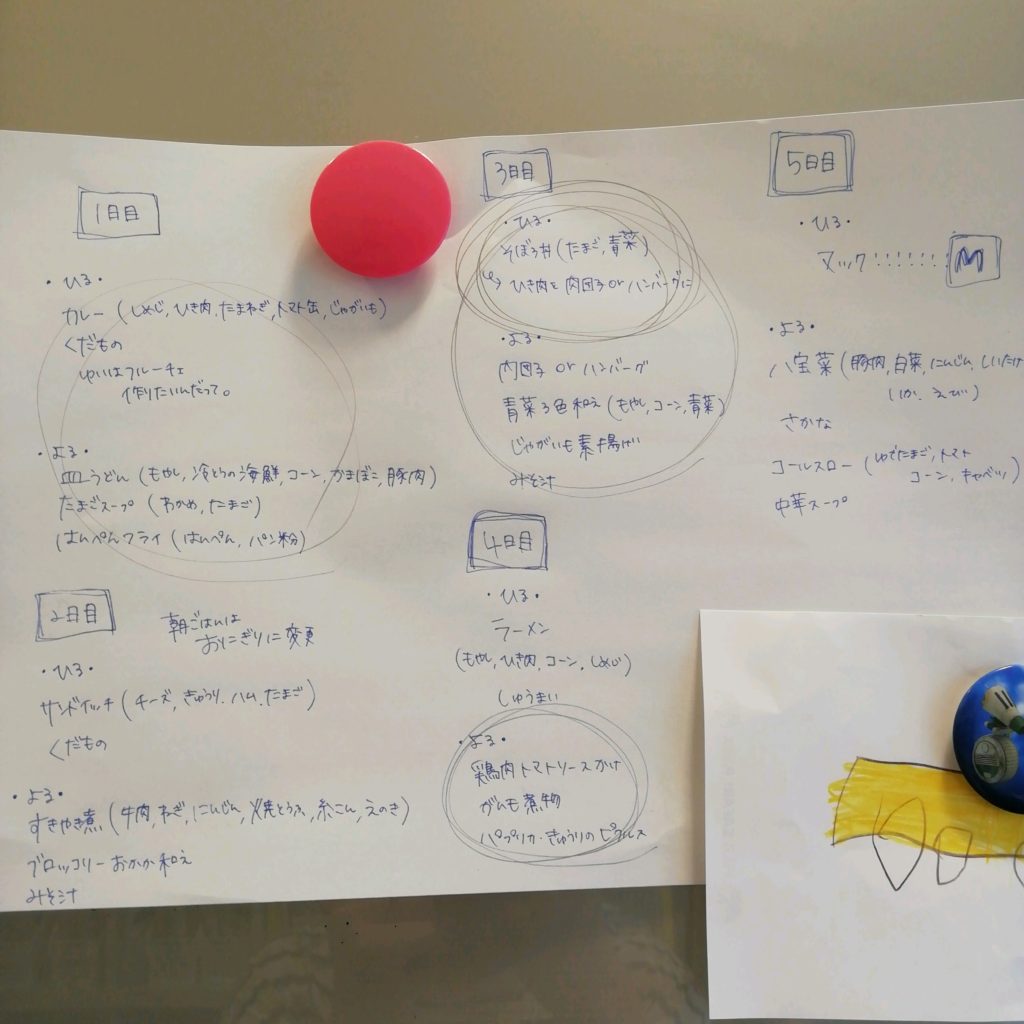 1日目
・ひる・
カレー (しめじ, ひき肉, たまねぎ, トマト缶, じゃがいも)
くだもの
ゆいはフルーチェ
作りたいんだって。
・よる・
皿うどん (もやし, 冷とうの海鮮, コーン, かまぼこ, 豚肉)
たまごスープ (わかめ, たまご)
はんぺんフライ (はんぺん, パン粉)
2日目
朝ごはんは
おにぎりに変更
・ひる・
サンドイッチ (チーズ, きゅうり, ハム, たまご)
くだもの
・よる・
すきやき煮 (牛肉, ねぎ, にんじん, 焼とうふ, 糸こん, えのき)
ブロッコリーおかか和え
みそ汁
3日目
・ひる・
そぼろ丼 (たまご, 青菜)
↳ ひき肉を肉団子orハンバーグに
・よる・
肉団子 or ハンバーグ
青菜3色和え (もやし, コーン, 青菜)
じゃがいも素揚げ
みそ汁
4日目
・ひる・
ラーメン
(もやし, ひき肉, コーン, しめじ)
しゅうまい
・よる・
鶏肉トマトソースかけ
がんも煮物
パプリカ・きゅうりのピクルス
5日目
・ひる・
マック!!!!!!! M
・よる・
八宝菜 (豚肉, 白菜, にんじん, しいたけ
いか, えび)
さかな
コールスロー (ゆでたまご, トマト
コーン, キャベツ)
中華スープ